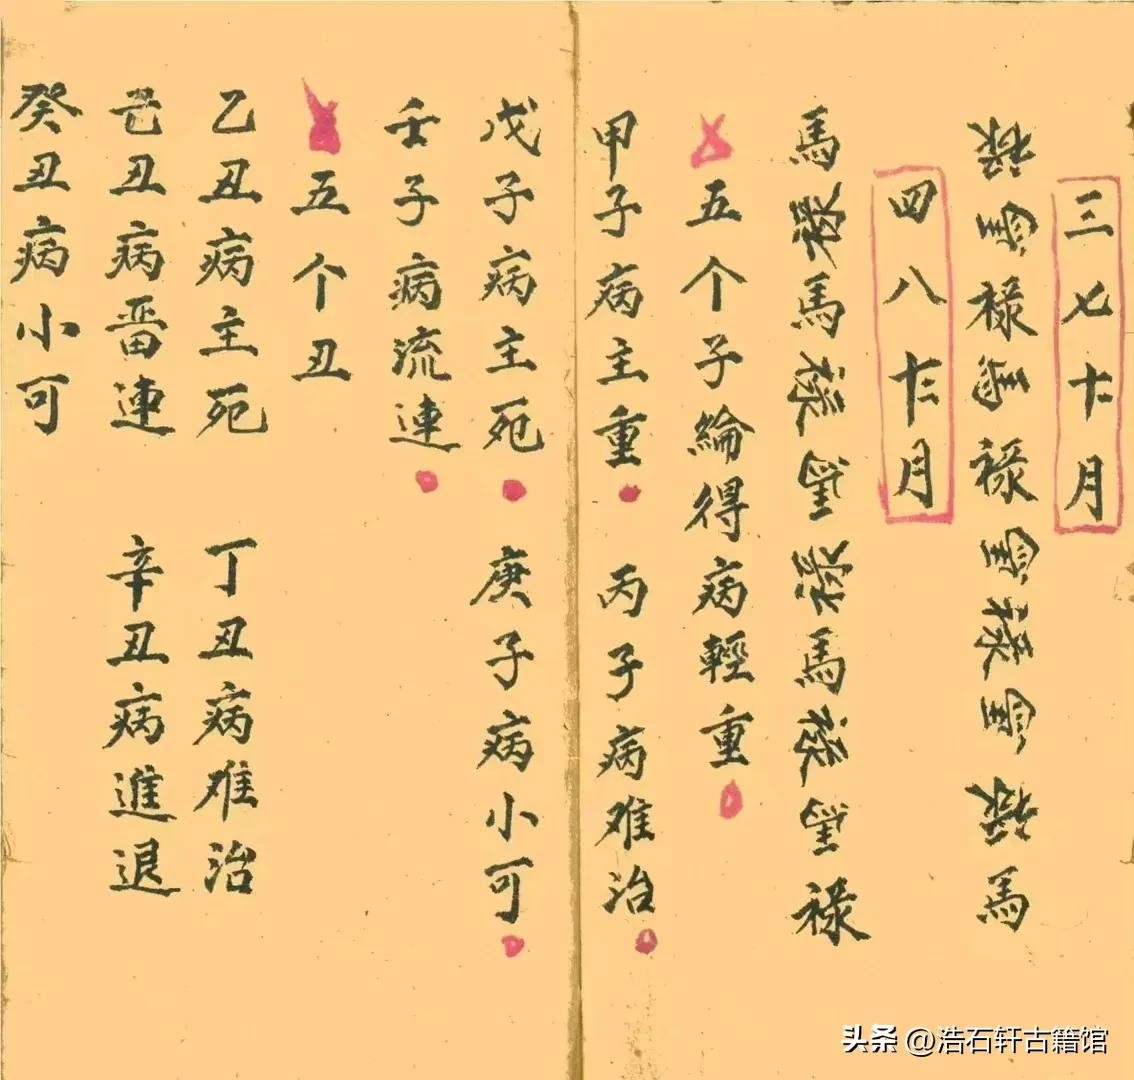 三七十一月
禄馬禄馬禄馬禄馬禄馬
四八十二月
馬禄馬禄馬禄馬禄馬禄
五个子綸得病輕重
甲子病主重 丙子病难治
戊子病主死 庚子病小可
壬子病流連
五个丑
乙丑病主死 丁丑病难治
己丑病畱連 辛丑病進退
癸丑病小可
头条 @浩石轩古籍馆